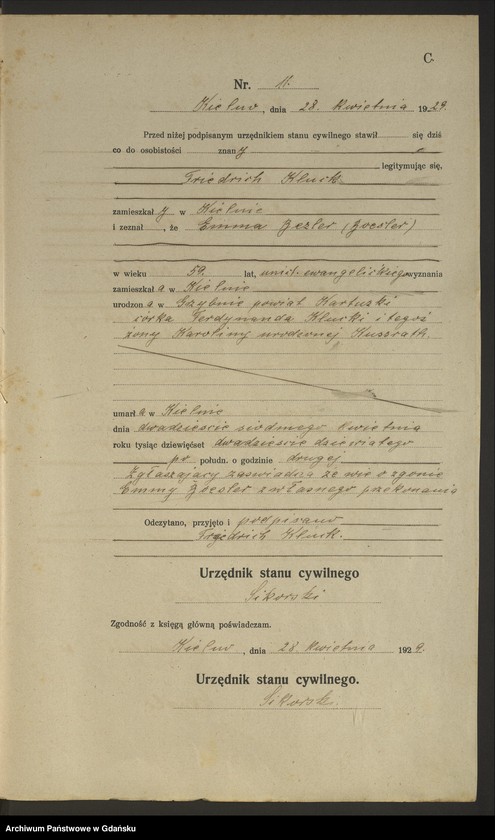 C.
Nr. 11.
Kielno, dnia 28. kwietnia 1929.
Przed niżej podpisanym urzędnikiem stanu cywilnego stawił się dziś
co do osobistości znany
legitymując się,
Friedrich Kluck
zamieszkał y w Kielnie
i zeznał, że Emma Bezler (Boesler)
w wieku 59 lat, unit. ewangelickiego wyznania
zamieszkał a w Kielnie
urodzon a w powiat Kartuzki
córka Ferdynanda Klucki i tegoż
żony Karoliny urodzonej Kussrath.
umarł a w Kielnie
dnia dwadzieście siódmego kwietnia
roku tysiąc dziewięćset dwadzieście dziewiątego
po połudn. o godzinie drugiej
Zgłaszający zaświadcza że wie o zgonie
Emmy Boesler z własnego przekonania
Odczytano, przyjęto i podpisano
Friedrich Kluck.
Urzędnik stanu cywilnego
Sikorski
Zgodność z księgą główną poświadczam.
Kielno, dnia 28. kwietnia 1929.
Urzędnik stanu cywilnego.
Sikorski.
Archiwum Państwowe w Gdańsku